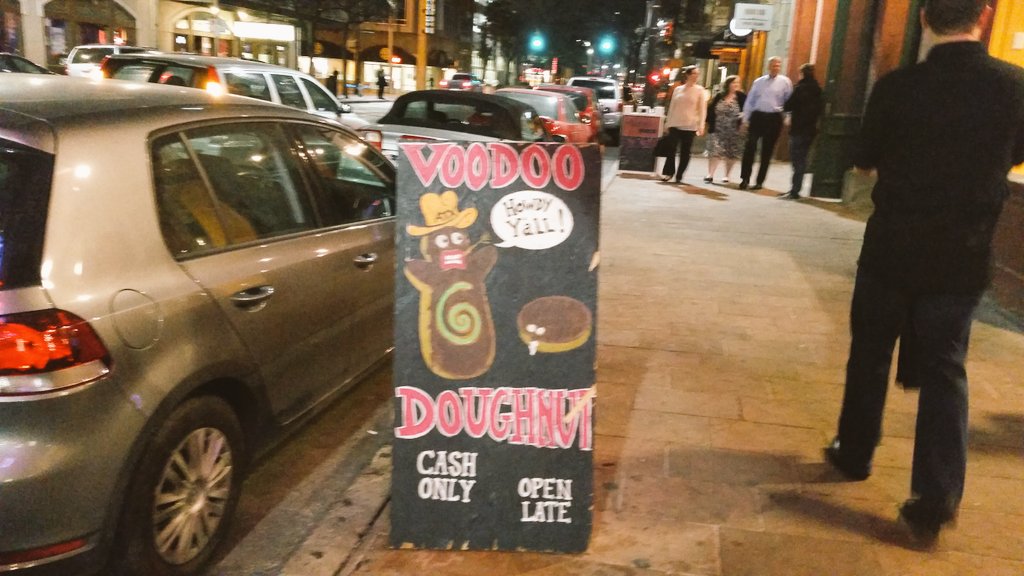 VOODOO
HOWDY
Y'ALL!
DOUGHNUT
CASH
ONLY
OPEN
LATE